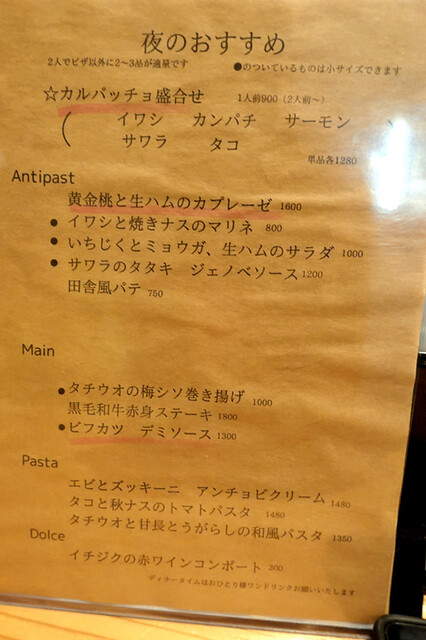 夜のおすすめ
2人でピザ以外に2〜3品が適量です
●のついているものは小サイズできます
☆カルパッチョ盛合せ 1人前900（2人前〜）
（ イワシ カンパチ サーモン
サワラ タコ
単品各1280
Antipast
黄金桃と生ハムのカプレーゼ 1600
● イワシと焼きナスのマリネ 800
● いちじくとミョウガ、生ハムのサラダ 1000
● サワラのタタキ ジェノベソース 1200
田舎風パテ 750
Main
● タチウオの梅シソ巻き揚げ 1000
黒毛和牛赤身ステーキ 1800
● ビフカツ デミソース 1300
Pasta
エビとズッキーニ アンチョビクリーム 1480
タコと秋ナスのトマトパスタ 1480
タチウオと甘長とうがらしの和風パスタ 1350
Dolce
イチジクの赤ワインコンポート
ディナータイムはおひとり様ワンドリンクお願いいたします